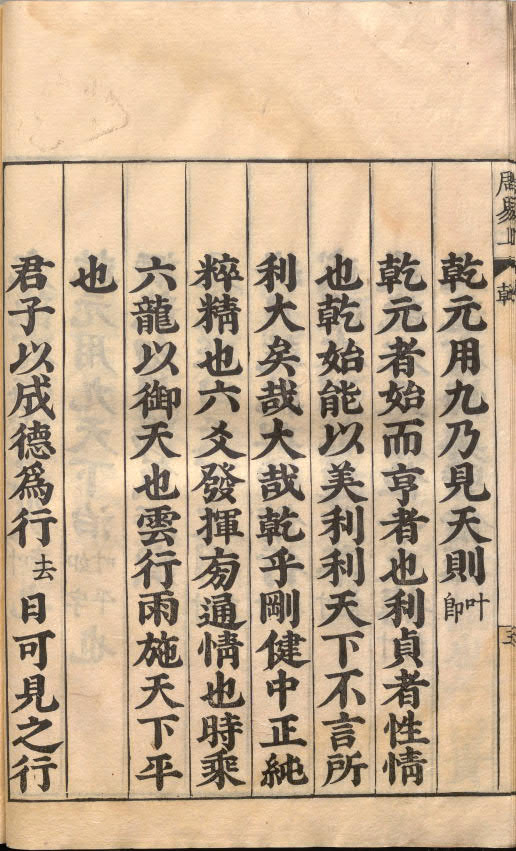 周易上 乾
乾元用九乃見天則叶即
乾元者始而亨者也利貞者性情
也乾始能以美利利天下不言所
利大矣哉大哉乾乎剛健中正純
粹精也六爻發揮㫄通情也時乘
六龍以御天也雲行雨施天下平
也
君子以成德爲行去日可見之行